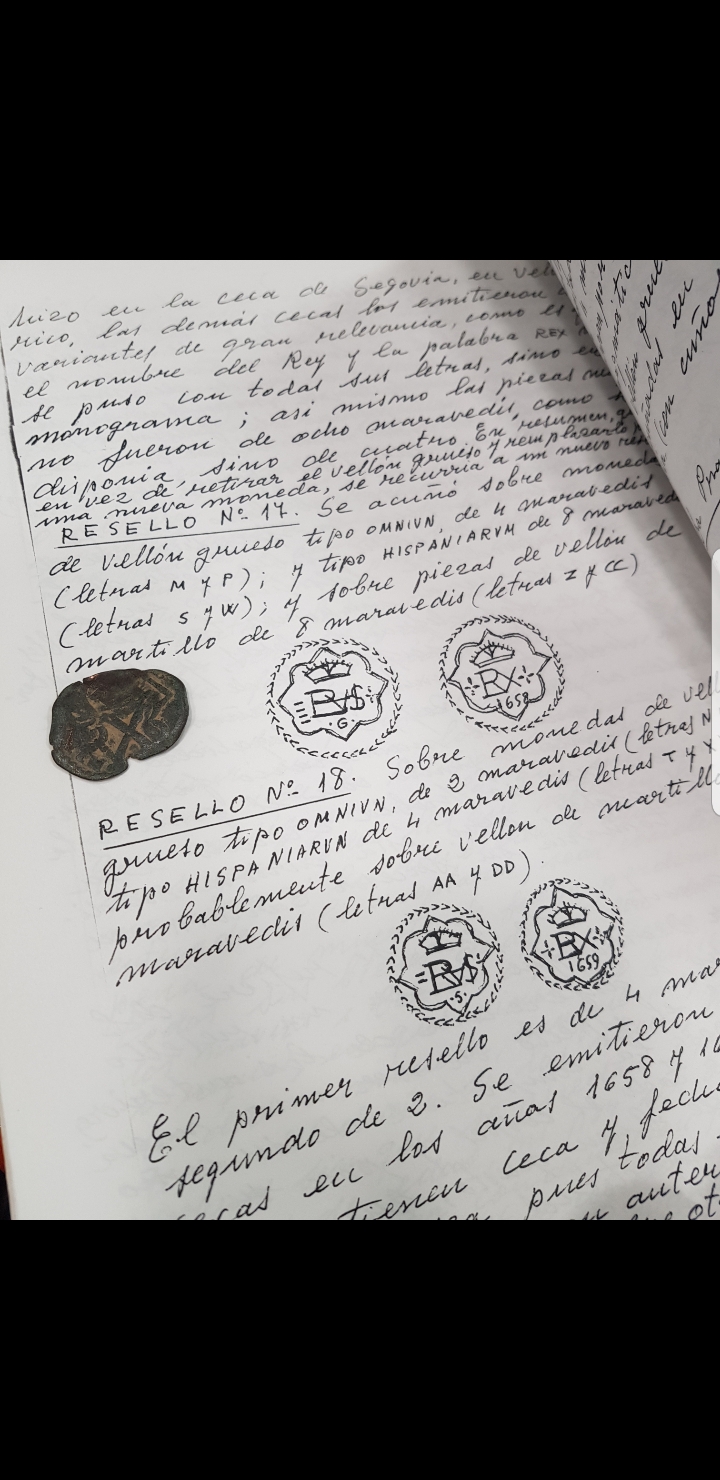 hizo en la ceca de Segovia, en
rico, las demás cecas los emitieron
variantes de gran relevancia, como es
el nombre del Rey y la palabra REX
se puso con todas sus letras, sino en
monograma; así mismo las piezas
no fueron de ocho maravedis, como
disponia, sino de cuatro. En resumen,
en vez de retirar el vellón grueso y remplazarlo
una nueva moneda, se recurria a un nuevo
RESELLO Nº 17. Se acuñó sobre moneda
de vellón grueso tipo OMNIVN, de 4 maravedis
(letras M y P); y tipo HISPANIARVM de 8
(letras S y W); y sobre piezas de vellón de
martillo de 8 maravedis (letras Z y CC)
RVS
IIII
.G.
RX
1658
RESELLO Nº 18. Sobre monedas de
grueso tipo OMNIVN, de 2 maravedis (letras N
tipo HISPANIARVN de 4 maravedis (letras T y X
probablemente sobre vellon de martillo
maravedis (letras AA y DD).
RVS
.S.
RX
1659
El primer resello es de 4
segundo de 2. Se emitieron
en los años 1658 y
tienen ceca y
pues todas
gruel
en
con cuños